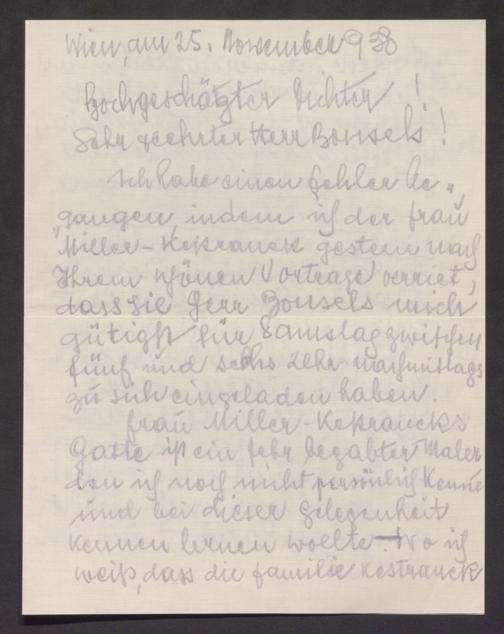 Wien, am 25. November 938
Hochgeschätzter Dichter!
Sehr geehrter Herr Bonsels!
Ich habe einen Fehler be„
„gangen, indem ich der Frau
Miller-Kestranek gestern nach
Ihrem schönen Vortrage verriet,
dass sie Herr Bonsels mich
gütigst für Samstag zwischen
fünf und sechs Uhr nachmittags
zu sich eingeladen haben.
Frau Miller-Kestraneks
Gatte ist ein sehr begabter Maler
den ich noch nicht persönlich kenne
und bei dieser Gelegenheit
kennen lernen wollte. Wo ich
weiß, dass die Familie Kestranek